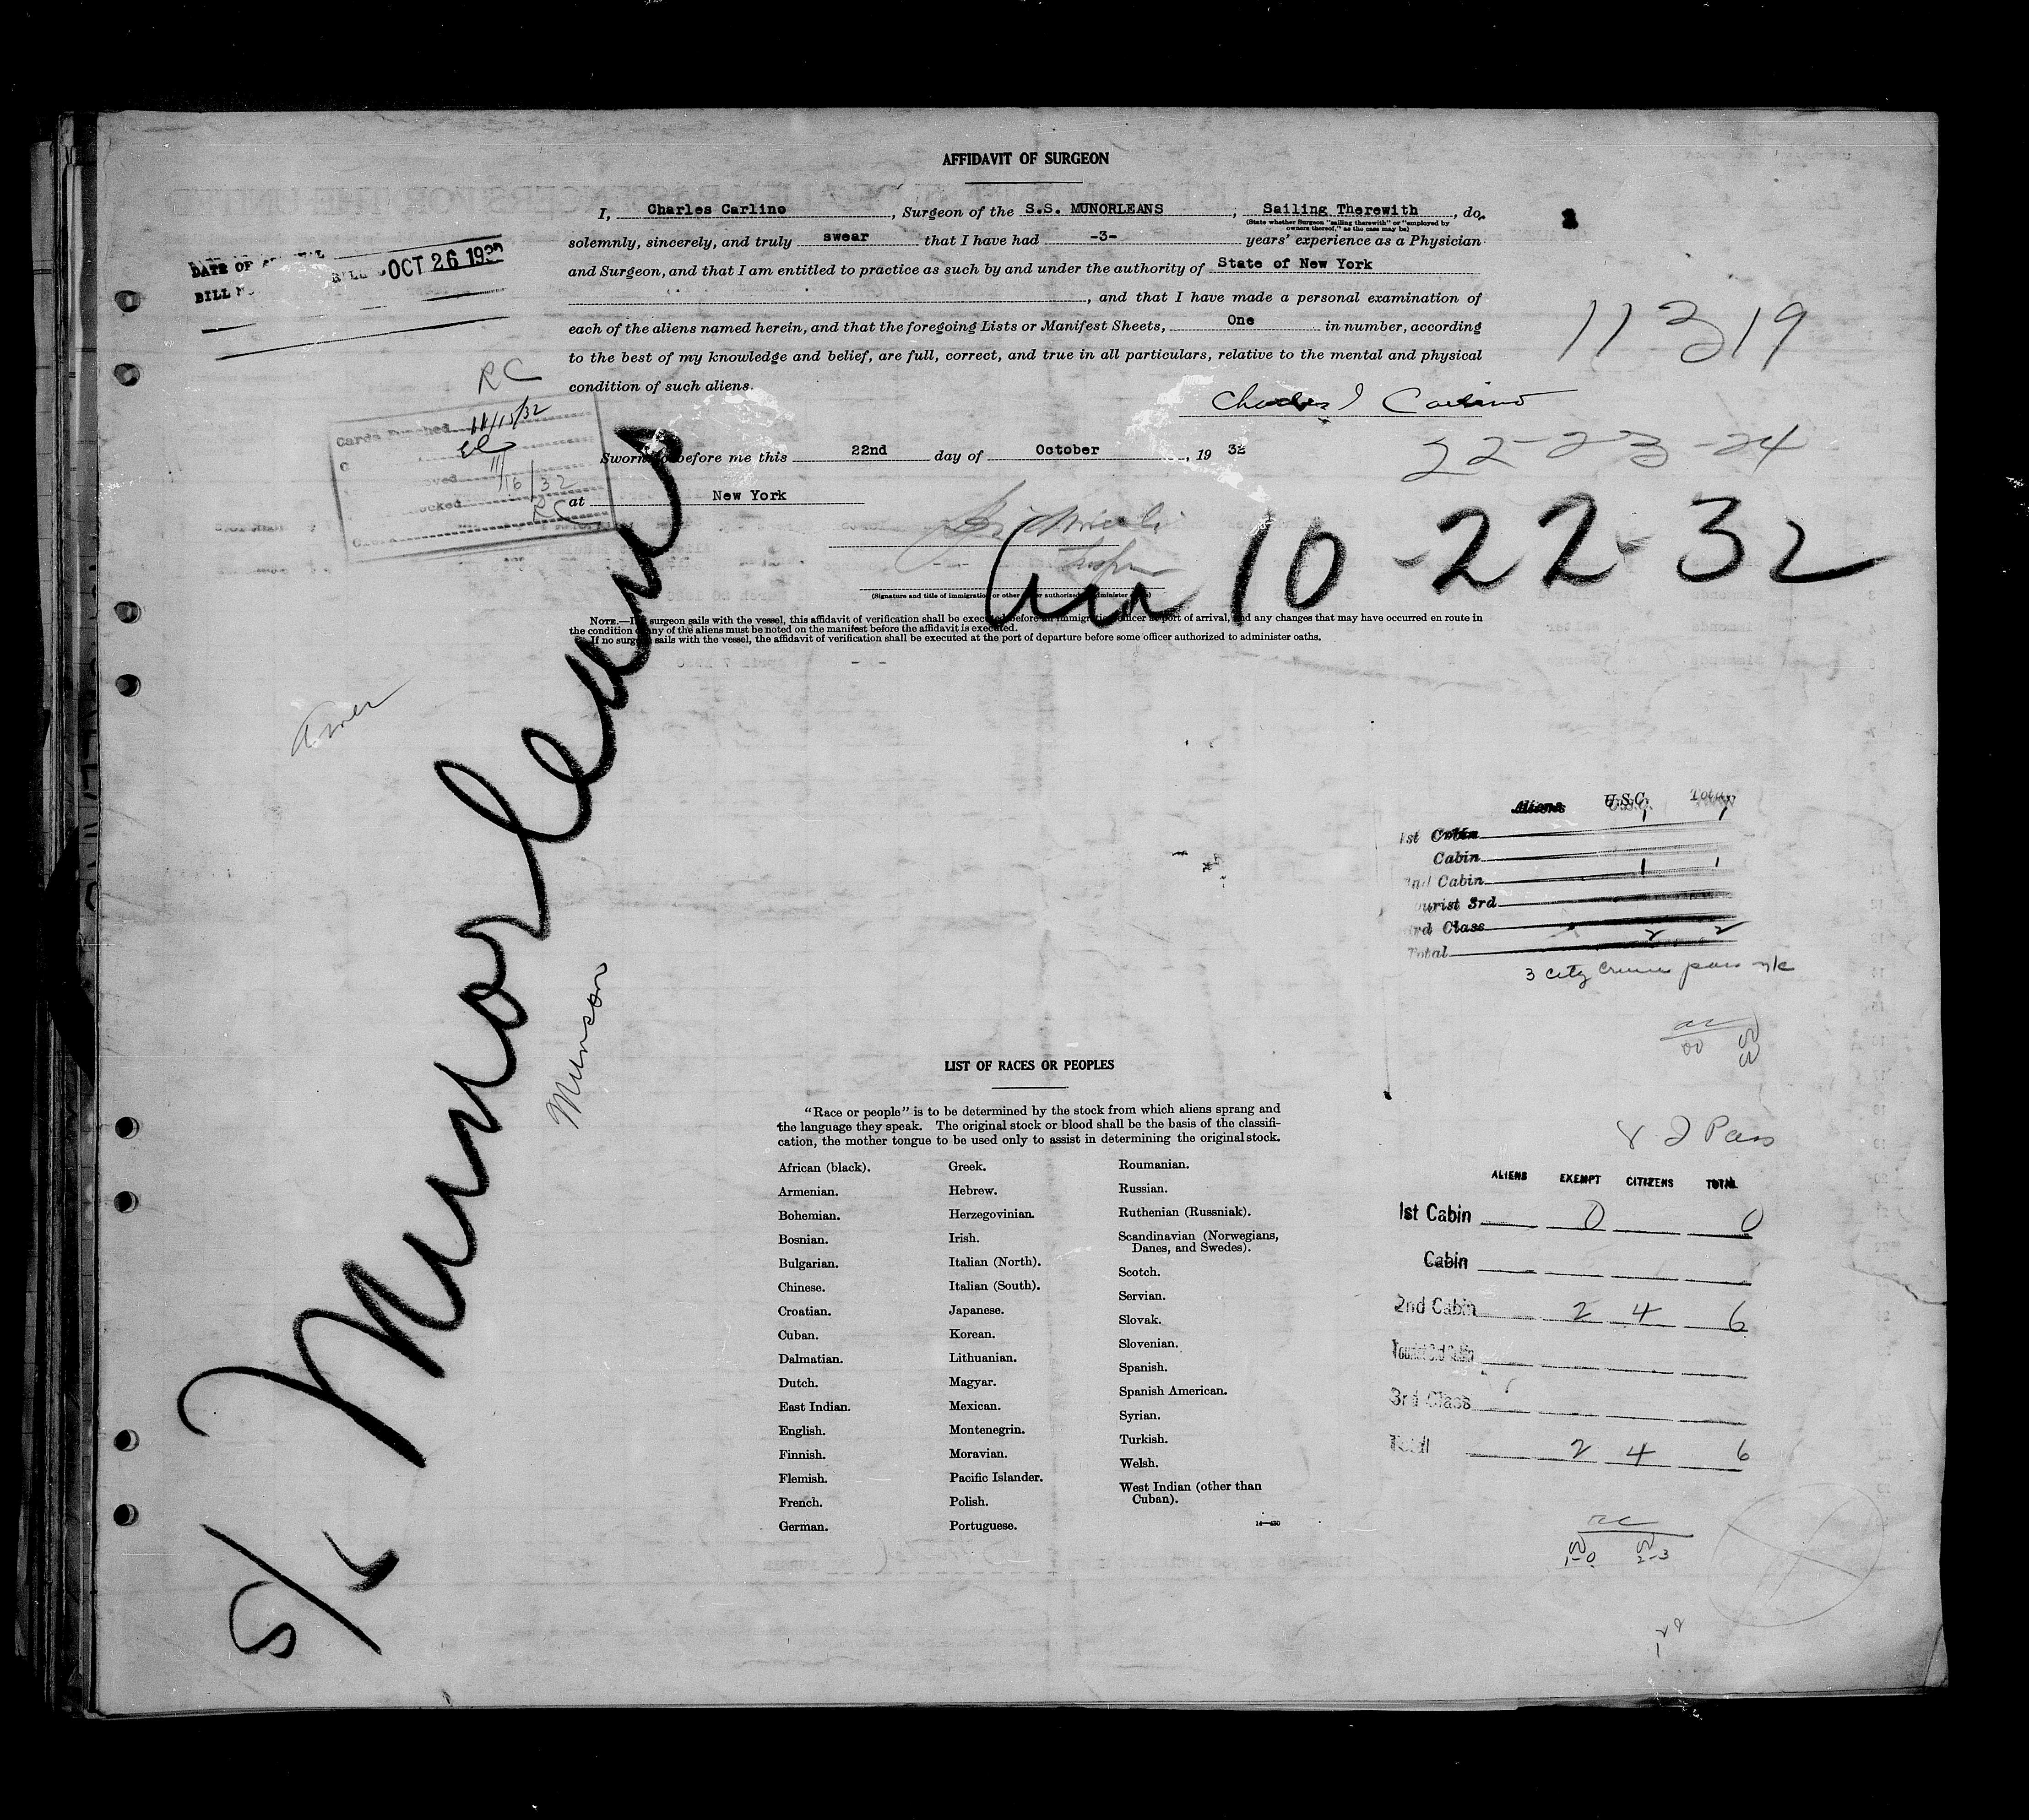 AFFIDAVIT OF SURGEON
I, Charles Carlino, Surgeon of the S.S. MUNORLEANS, Sailing Therewith, do,
(State whether Surgeon "sailing therewith" or "employed by
owners thereof," as the case may be)
solemnly, sincerely, and truly swear that I have had -3- years' experience as a Physician
and Surgeon, and that I am entitled to practice as such by and under the authority of State of New York
, and that I have made a personal examination of
each of the aliens named herein, and that the foregoing Lists or Manifest Sheets, One in number, according
to the best of my knowledge and belief, are full, correct, and true in all particulars, relative to the mental and physical
condition of such aliens.
DATE OF
BILL
OCT 26 193
11319
RC
Cards Punched 11/15/32
11/16/32
RC
Charles J Carlino
Sworn to before me this 22nd day of October, 19 32
at New York
22-23-24
10-22-32
(Signature and title of immigration or other officer authorized to administer oaths)
NOTE.—If surgeon sails with the vessel, this affidavit of verification shall be executed before an immigration officer at port of arrival, and any changes that may have occurred en route in
the condition of any of the aliens must be noted on the manifest before the affidavit is executed.
If no surgeon sails with the vessel, the affidavit of verification shall be executed at the port of departure before some officer authorized to administer oaths.
Amer
S/S Munorleans
Munson
Aliens U.S.C. Total
1st Cabin 1 1
Cabin
2nd Cabin 1 1
Tourist 3rd
3rd Class
Total 2 2
3 city pass
LIST OF RACES OR PEOPLES
"Race or people" is to be determined by the stock from which aliens sprang and
the language they speak. The original stock or blood shall be the basis of the classifi-
cation, the mother tongue to be used only to assist in determining the original stock.
African (black).
Armenian.
Bohemian.
Bosnian.
Bulgarian.
Chinese.
Croatian.
Cuban.
Dalmatian.
Dutch.
East Indian.
English.
Finnish.
Flemish.
French.
German.
Greek.
Hebrew.
Herzegovinian.
Irish.
Italian (North).
Italian (South).
Japanese.
Korean.
Lithuanian.
Magyar.
Mexican.
Montenegrin.
Moravian.
Pacific Islander.
Polish.
Portuguese.
Roumanian.
Russian.
Ruthenian (Russniak).
Scandinavian (Norwegians,
Danes, and Swedes).
Scotch.
Servian.
Slovak.
Slovenian.
Spanish.
Spanish American.
Syrian.
Turkish.
Welsh.
West Indian (other than
Cuban).
Pass
ALIENS EXEMPT CITIZENS TOTAL
1st Cabin 0 0
Cabin
2nd Cabin 2 4 6
Tourist 3rd Cabin
3rd Class
Total 2 4 6
1-0 2-3